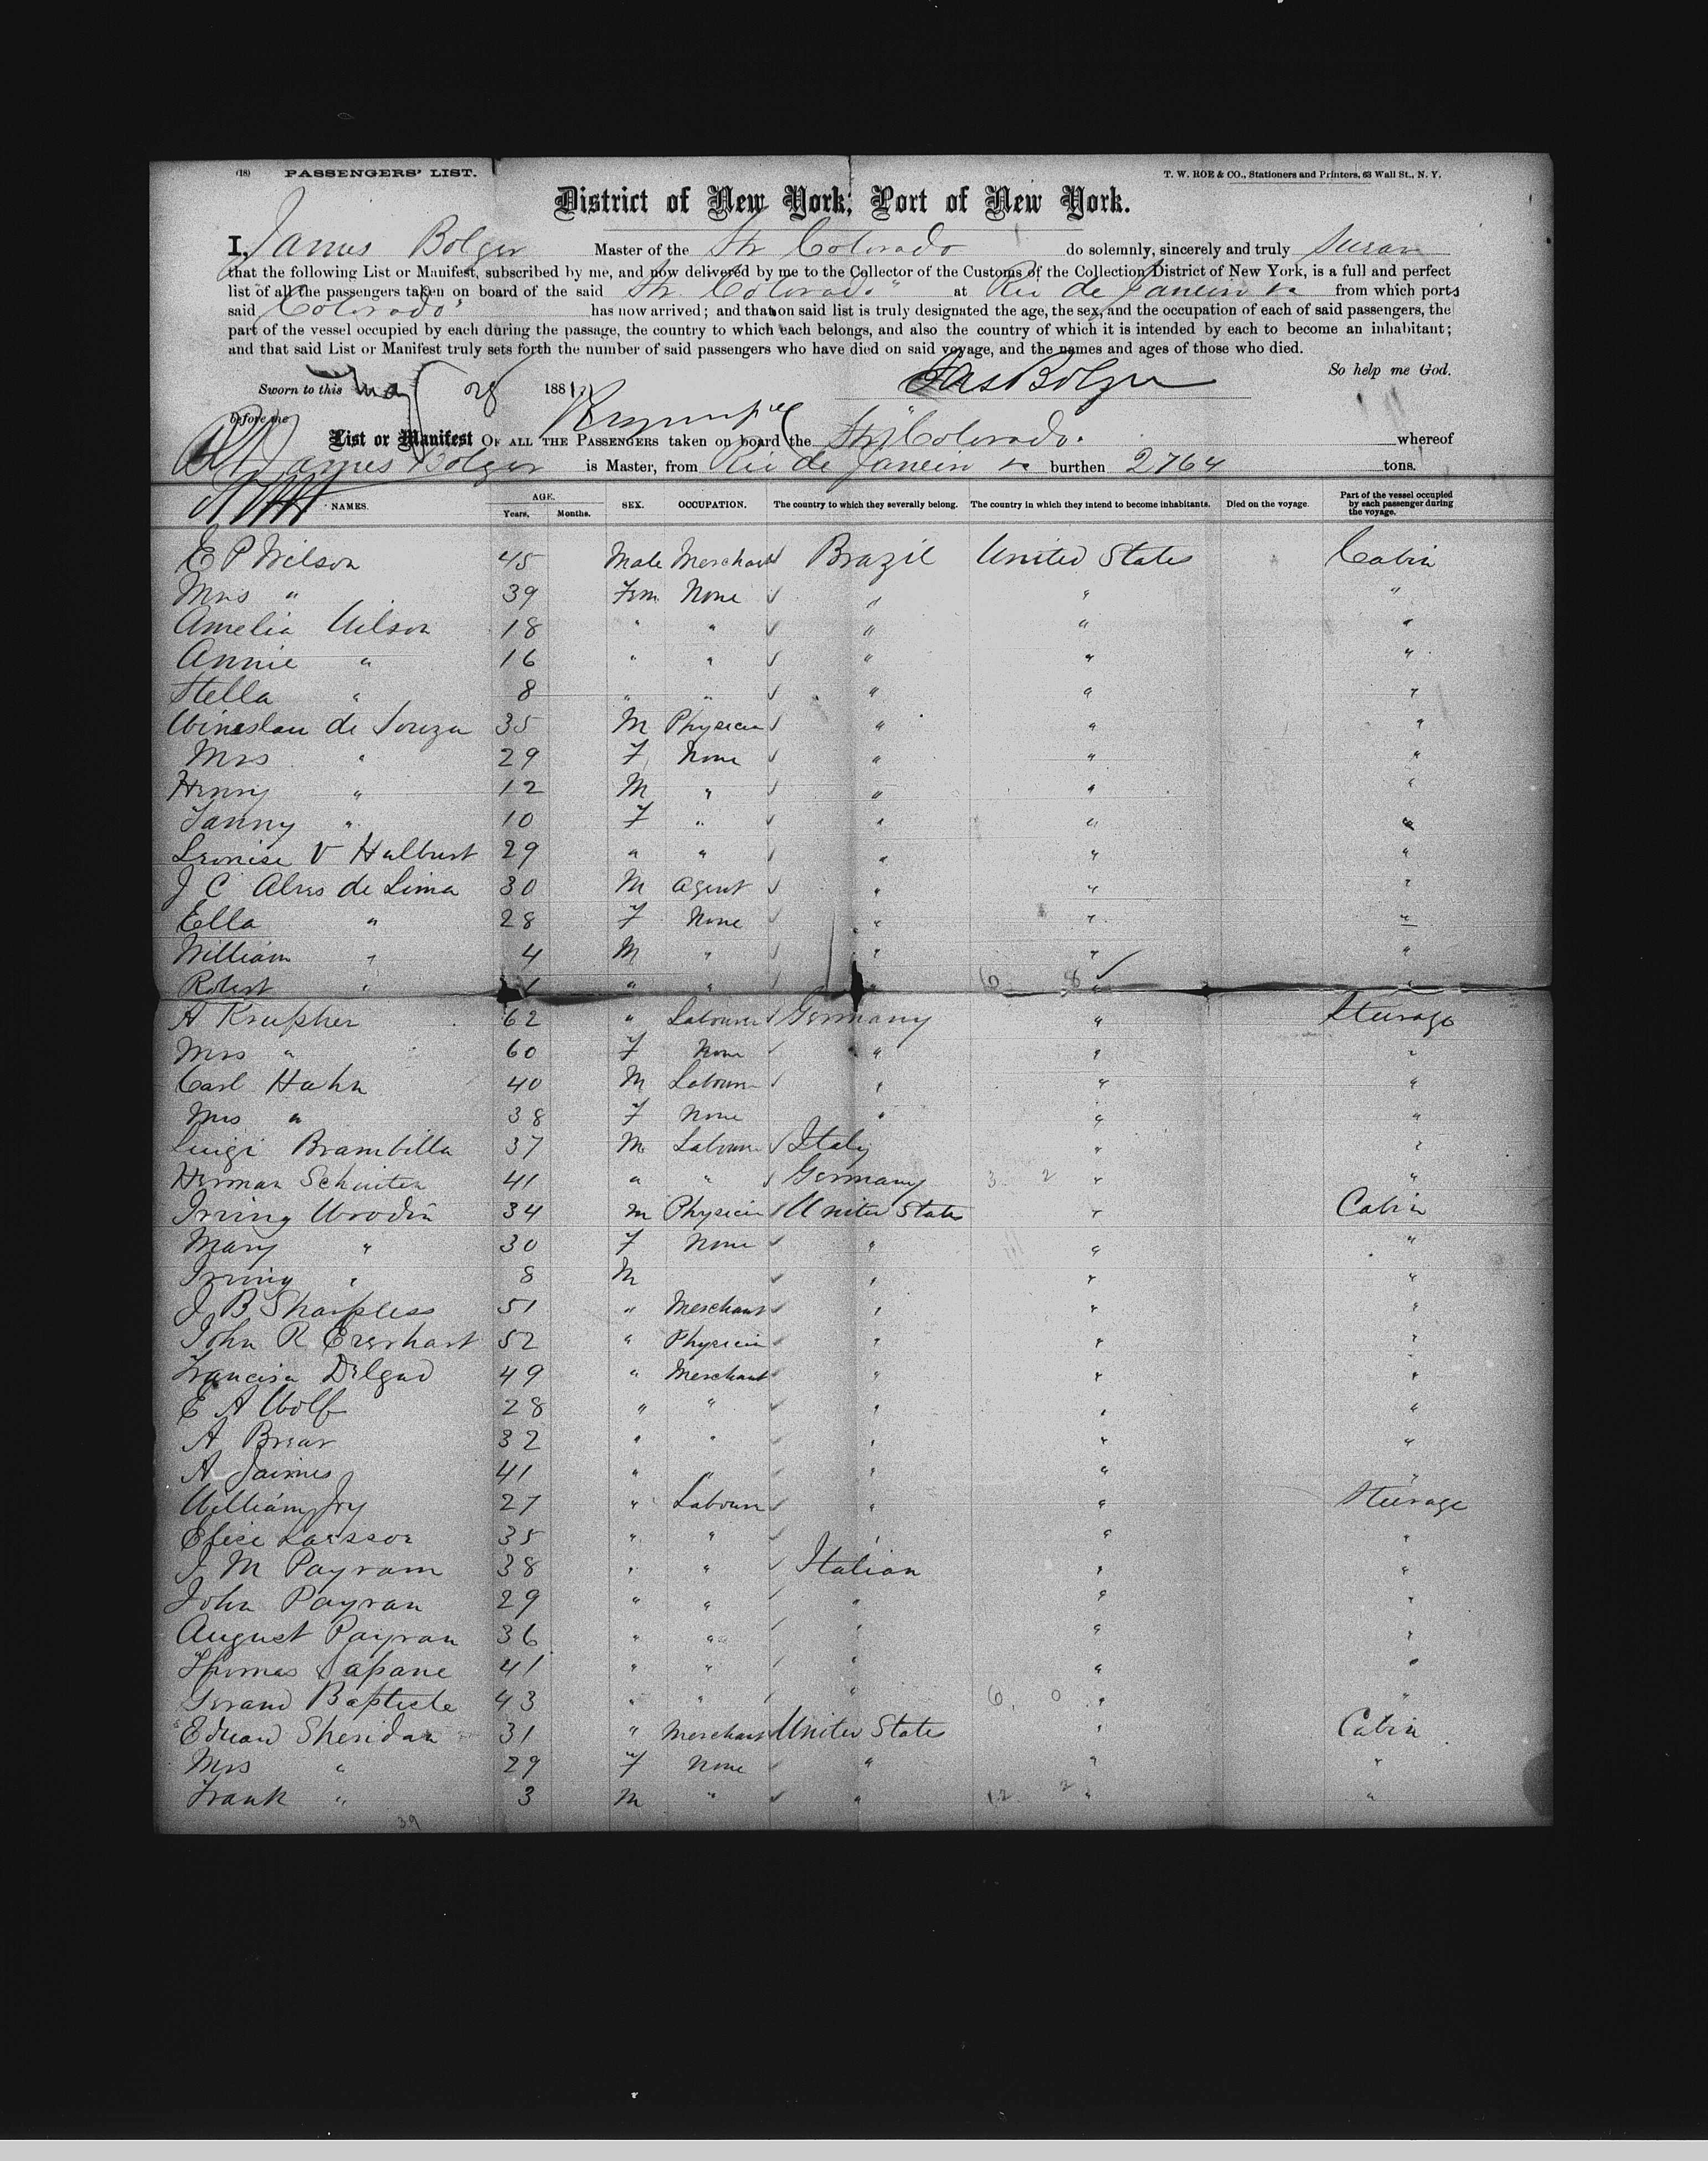 (18) PASSENGERS' LIST. T. W. ROE & CO., Stationers and Printers, 63 Wall St., N. Y.
District of New York; Port of New York.
I, James Bolger Master of the Str Colorado do solemnly, sincerely and truly swear
that the following List or Manifest, subscribed by me, and now delivered by me to the Collector of the Customs of the Collection District of New York, is a full and perfect
list of all the passengers taken on board of the said Str. Colorado" at Rio de Janeiro &c from which ports
said Colorado" has now arrived; and that on said list is truly designated the age, the sex, and the occupation of each of said passengers, the
part of the vessel occupied by each during the passage, the country to which each belongs, and also the country of which it is intended by each to become an inhabitant;
and that said List or Manifest truly sets forth the number of said passengers who have died on said voyage, and the names and ages of those who died.
So help me God.
Sworn to this May 28 188 Jas Bolger
before me
List or Manifest OF ALL THE PASSENGERS taken on board the Str "Colorado. whereof
James Bolger is Master, from Rio de Janeiro &c burthen 2764 tons.
NAMES. AGE. Years. Months. SEX. OCCUPATION. The country to which they severally belong. The country in which they intend to become inhabitants. Died on the voyage. Part of the vessel occupied by each passenger during the voyage.
E P Wilson 45 Male Merchant Brazil United States Cabin
Mrs " 39 Fem None " " "
Amelia Wilson 18 " " " " "
Annie " 16 " " " " "
Stella " 8 " " " " "
Wineslau de Souza 35 M Physician " " "
Mrs " 29 F None " " "
Henry " 12 M " " " "
Fanny " 10 F " " " "
Leonise V Hulburt 29 " " " " "
J C Alves de Lima 30 M Agent " " "
Ella " 28 F None " " "
William " 4 M " " " "
Robert " 1 " " " 6 8 " "
A Krupher 62 " Labourer Germany " Steerage
Mrs " 60 F None " " "
Carl Hahn 40 M Labourer " " "
Mrs " 38 F None " " "
Luigi Brambilla 37 M Labourer Italy " "
Herman Schuiten 41 " " Germany 3 2 " "
Irving Woodin 34 M Physician United States " Cabin
Mary " 30 F None " " "
Irving " 8 M " " "
J B Sharpless 51 " Merchant " " "
John R Everhart 52 " Physician " " "
Francisa Delgad 49 " Merchant " " "
E A Wolf 28 " " " " "
A Brear 32 " " " " "
A Jaimes 41 " " " " "
William Jry 27 " Labourer " " Steerage
Larsson 35 " " " " "
J M Payram 38 " " Italian " "
John Payran 29 " " " " "
August Payran 36 " " " " "
Thomas Sapane 41 " " " " "
Gerand Baptiste 43 " " " 6 0 " "
Edward Sheridan 31 " Merchant United States " Cabin
Mrs " 29 F None " " "
Frank " 3 M " " 12 2 " "
39